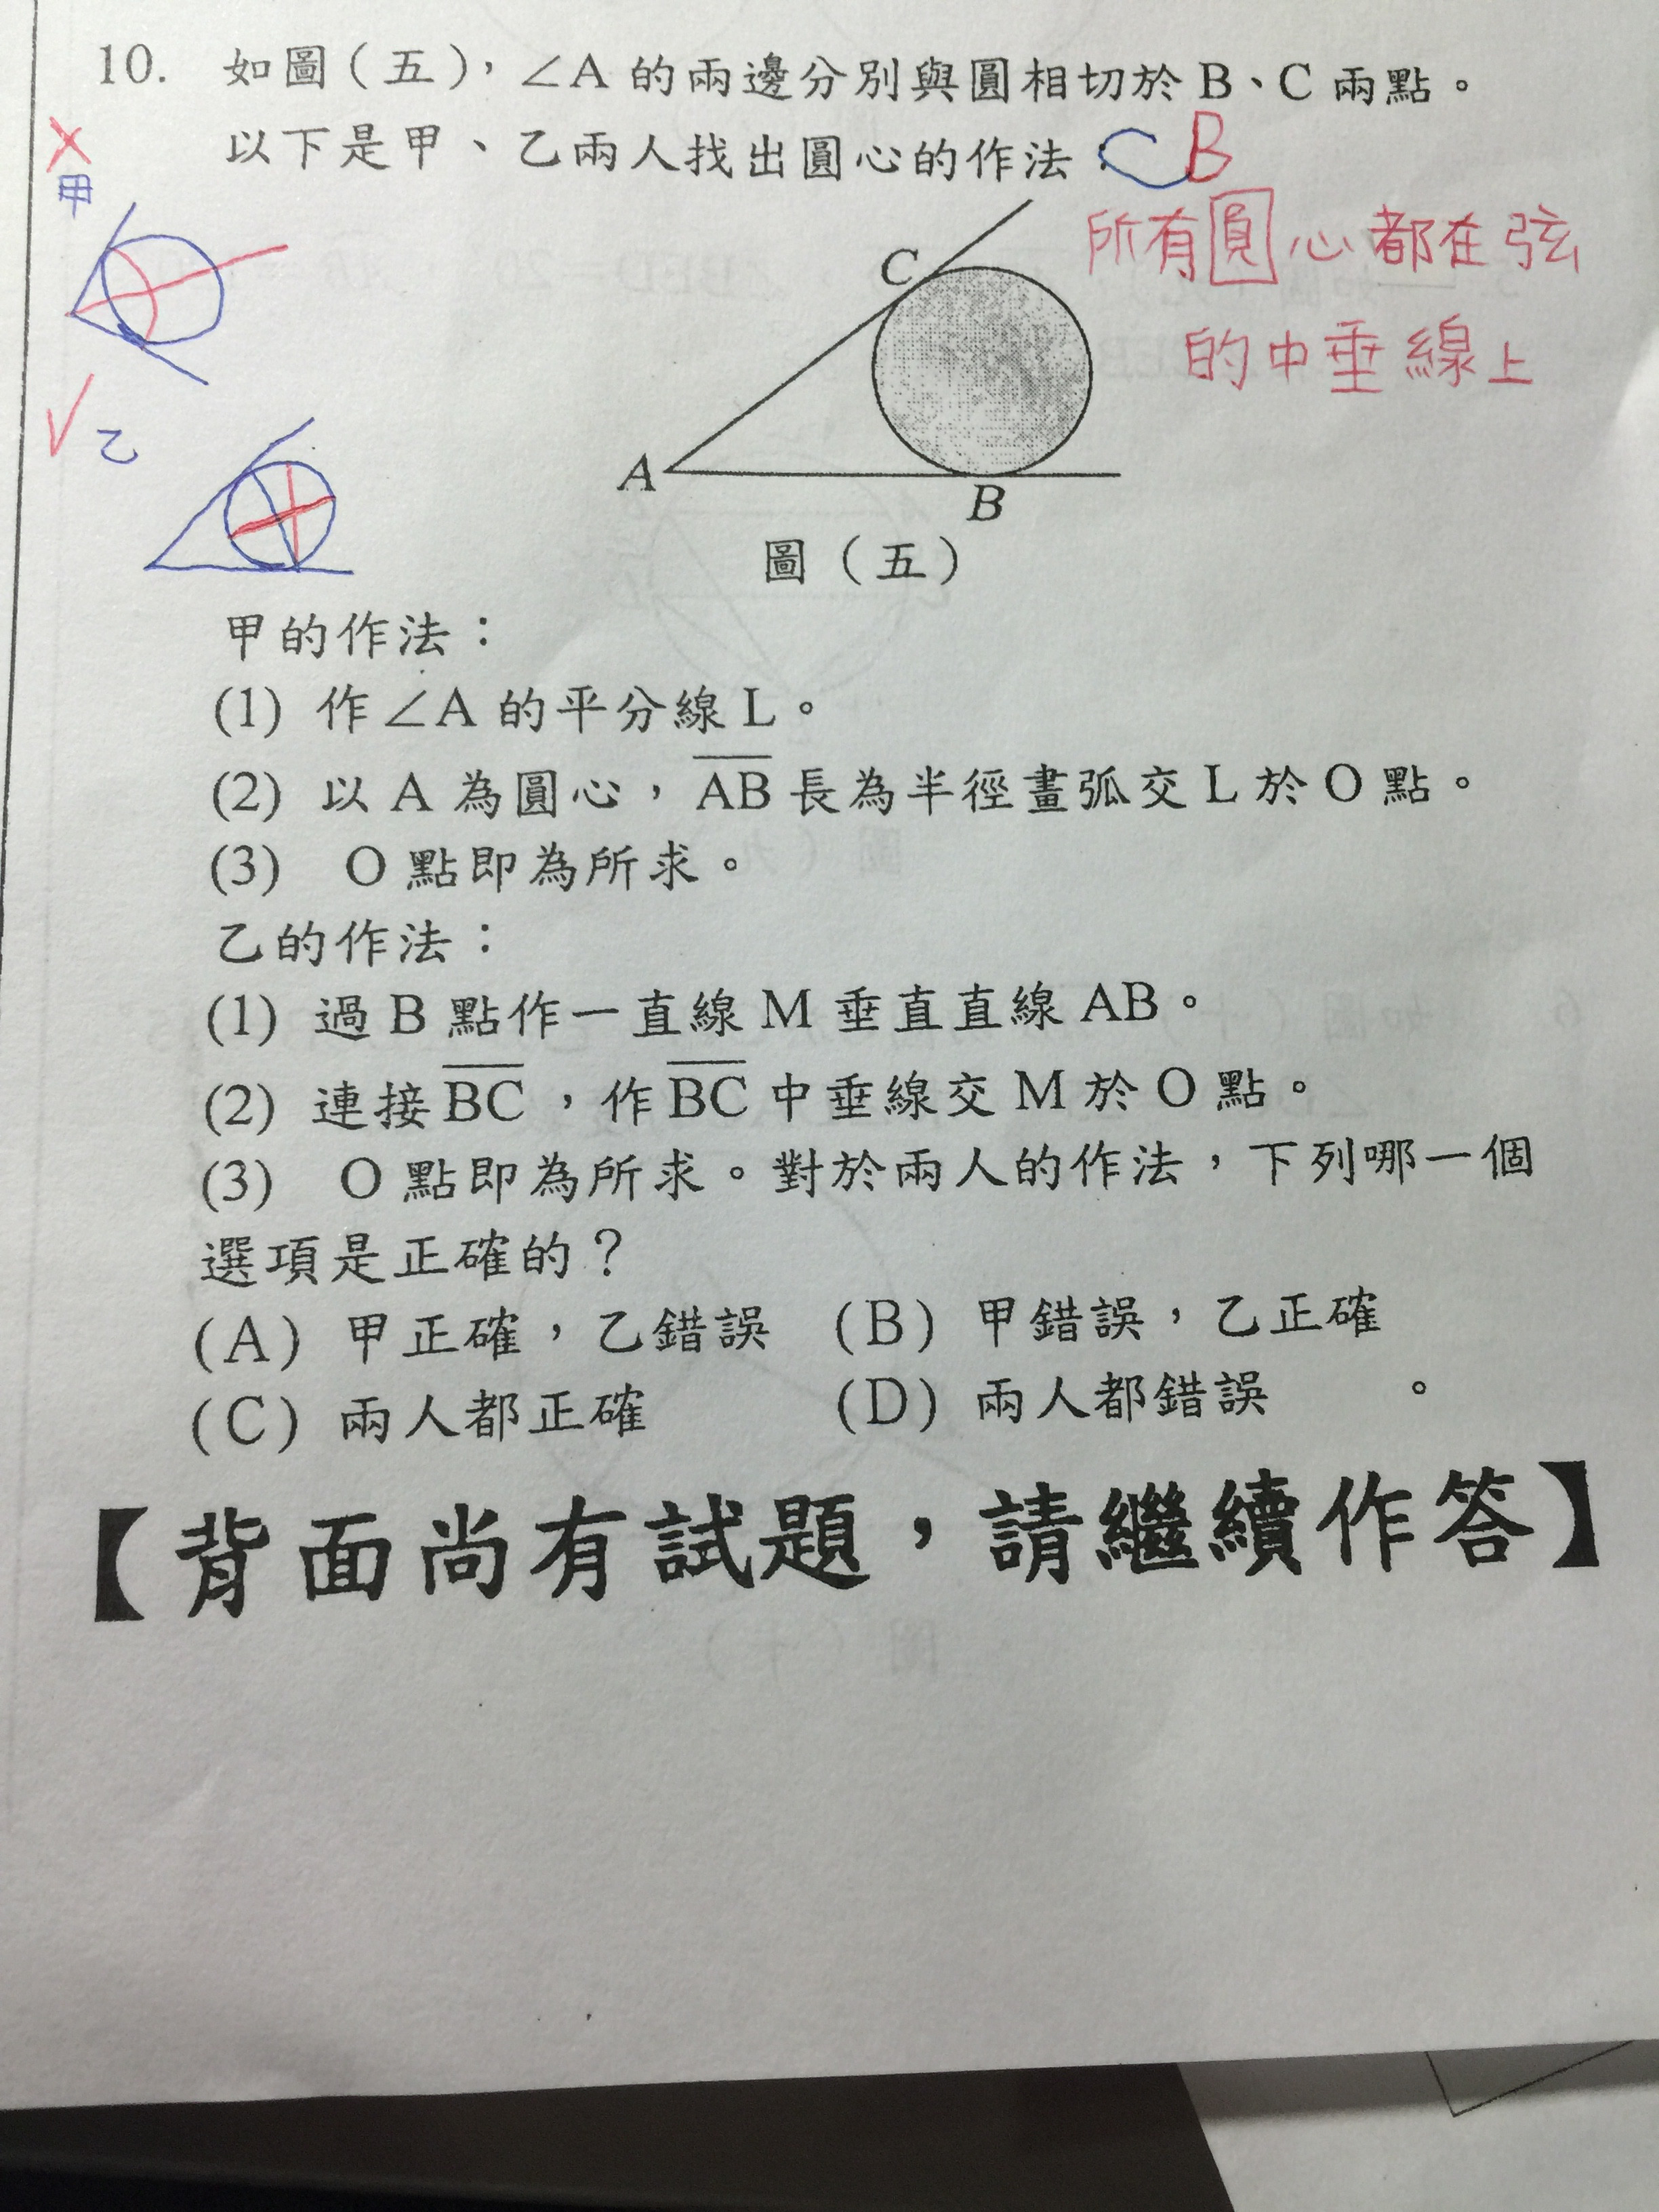 10. 如圖（五），∠A 的兩邊分別與圓相切於 B、C 兩點。
以下是甲、乙兩人找出圓心的作法：
C B
×
甲
所有圓心都在弦
的中垂線上
C
✓乙
A
B
圖（五）
甲的作法：
(1) 作∠A 的平分線 L。
(2) 以 A 為圓心，A̅B̅ 長為半徑畫弧交 L 於 O 點。
(3) O 點即為所求。
乙的作法：
(1) 過 B 點作一直線 M 垂直直線 AB。
(2) 連接 B̅C̅，作 B̅C̅ 中垂線交 M 於 O 點。
(3) O 點即為所求。對於兩人的作法，下列哪一個
選項是正確的？
(A) 甲正確，乙錯誤 (B) 甲錯誤，乙正確
(C) 兩人都正確 (D) 兩人都錯誤 。
【背面尚有試題，請繼續作答】